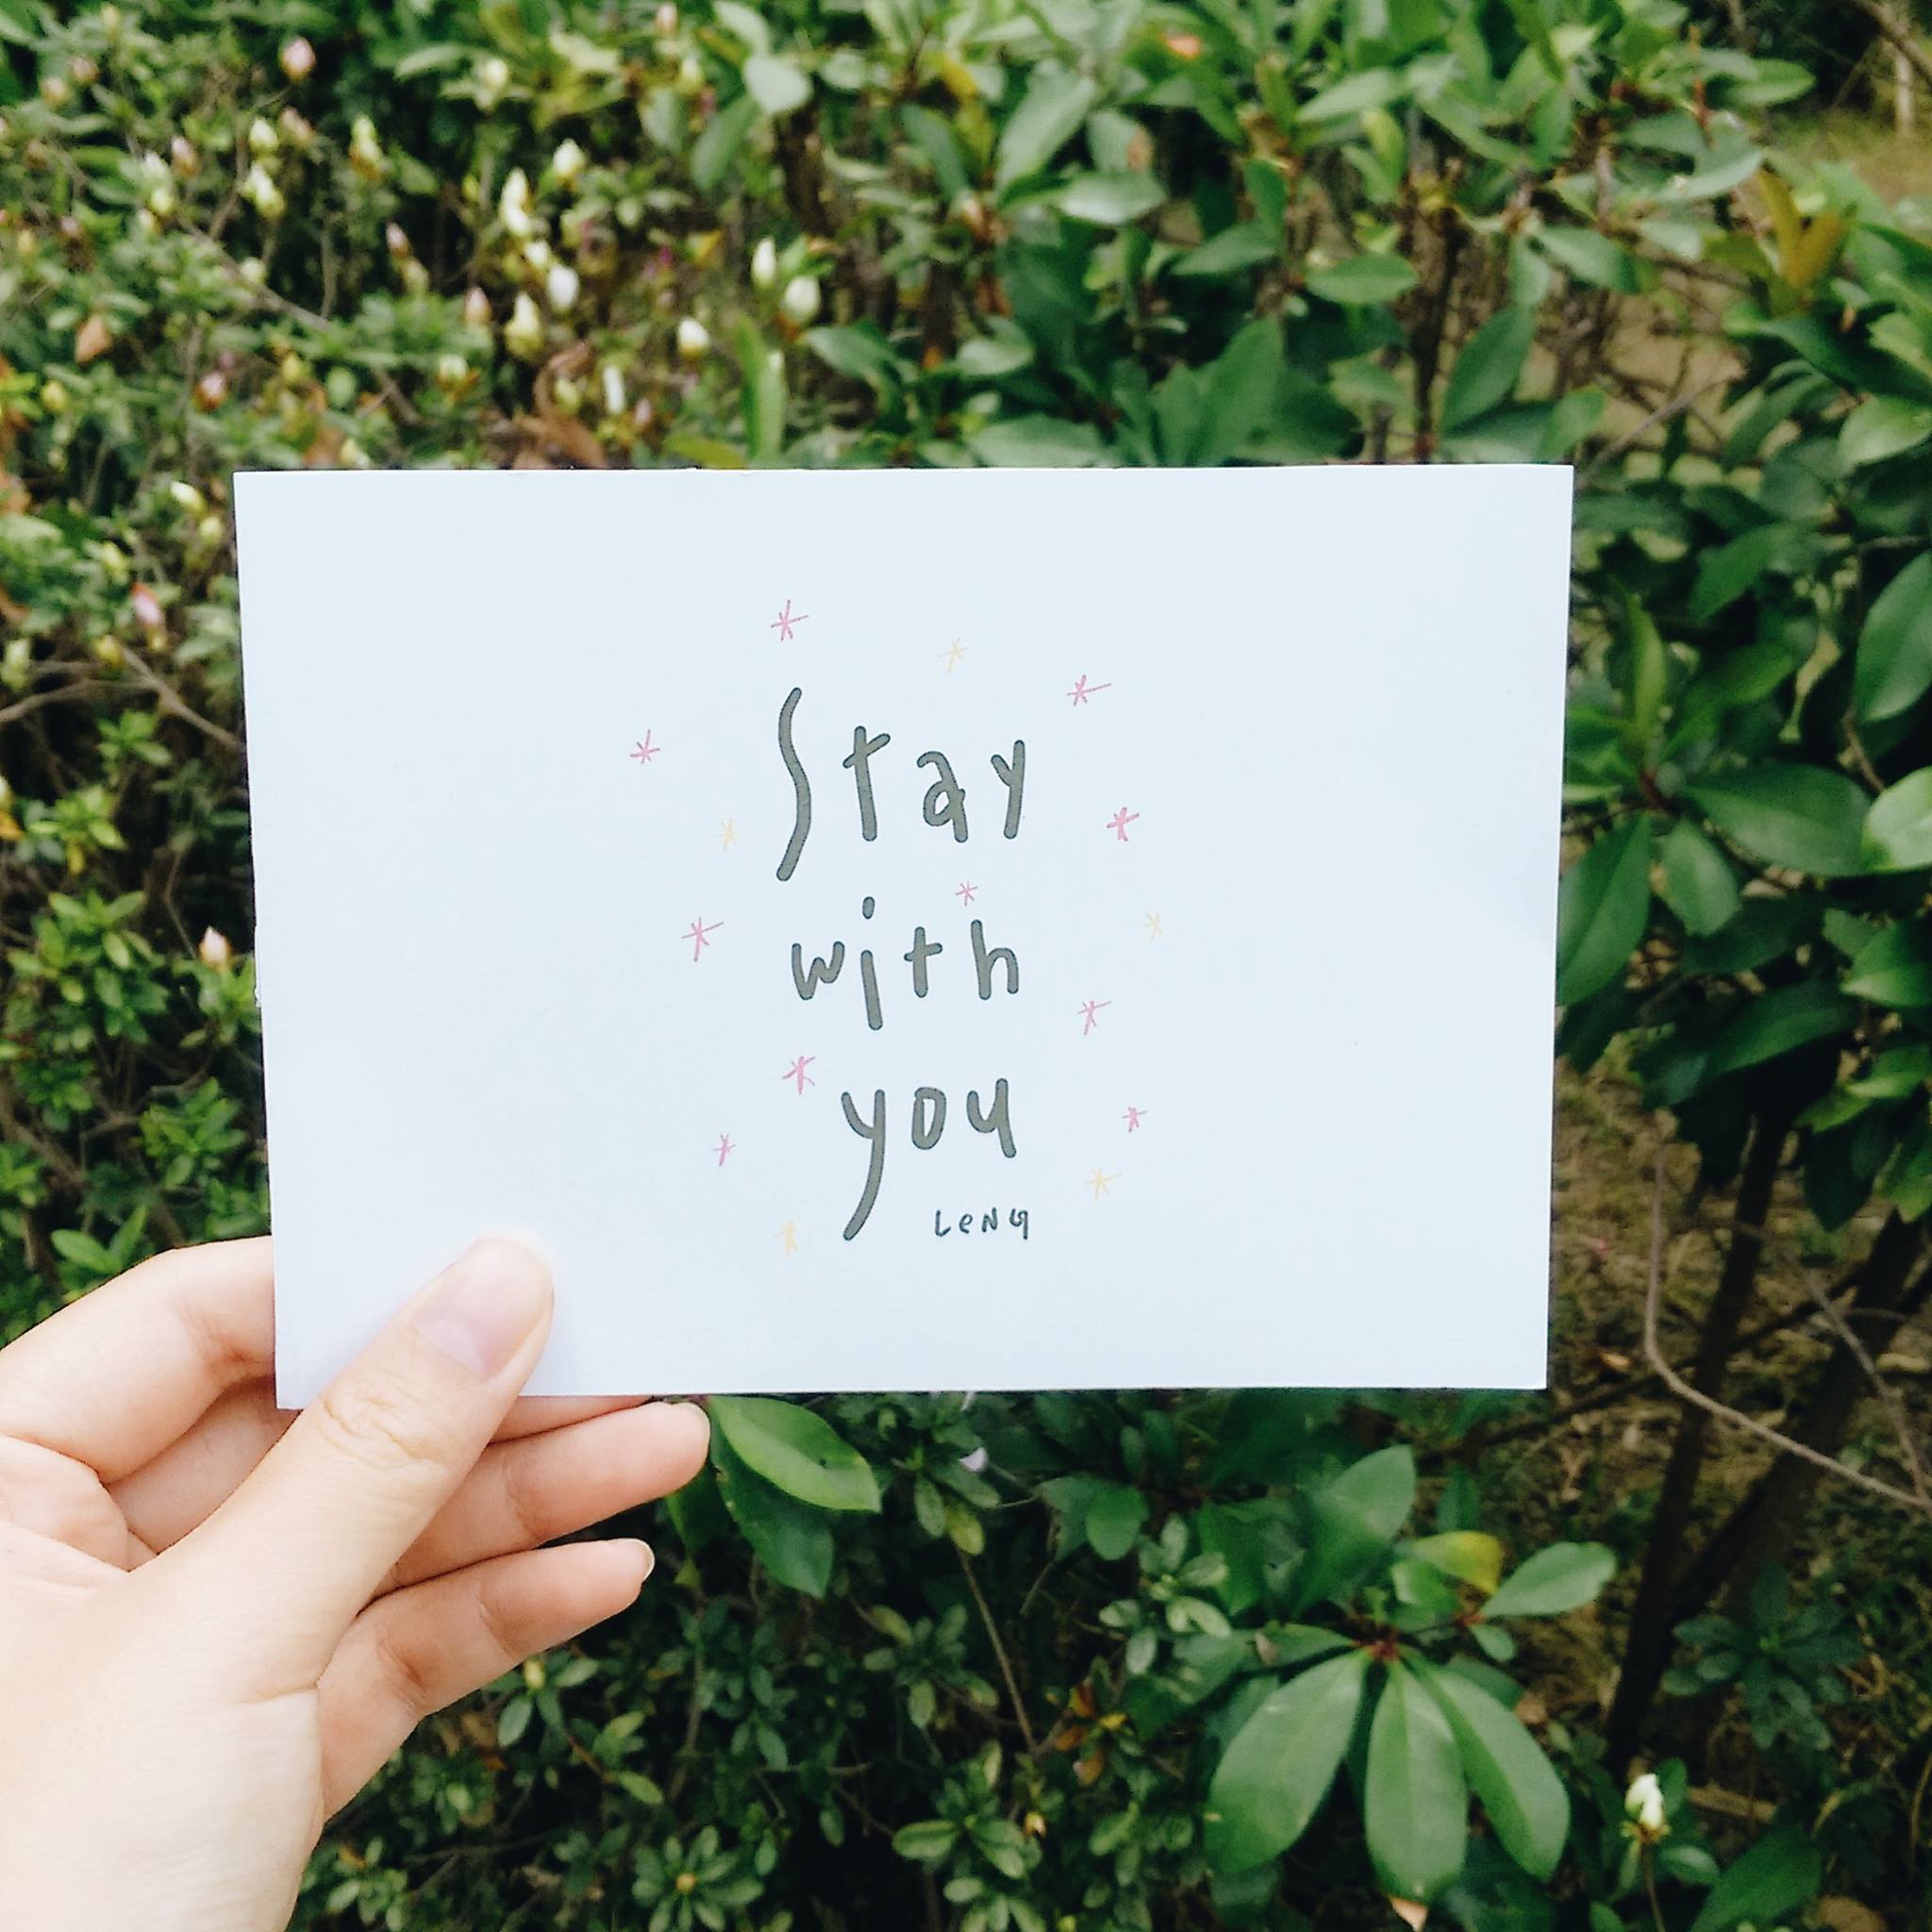 Stay
with
you
LeNG